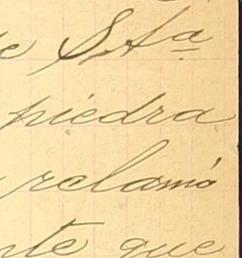 e S.ta
piedra
reclamó
nte que